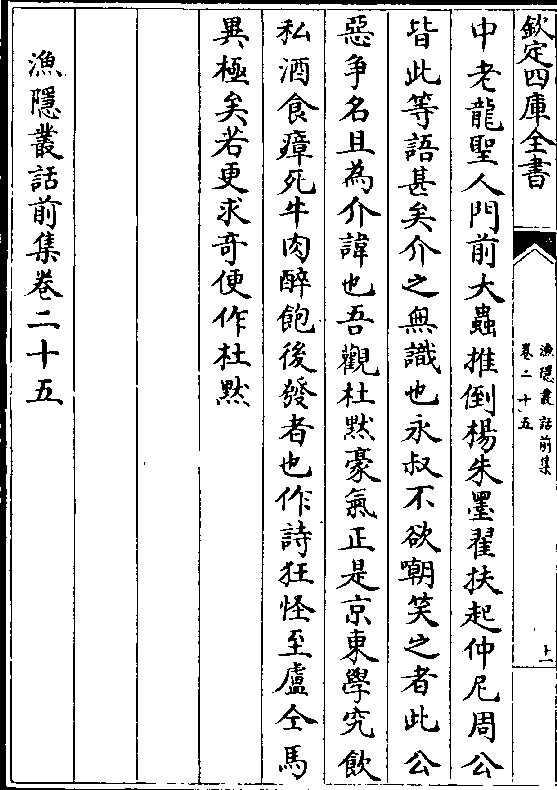 欽定四庫全書
漁隱叢話前集
卷二十五
十一
中老龍聖人門前大蟲推倒楊朱墨翟扶起仲尼周公
皆此等語甚矣介之無識也永叔不欲嘲笑之者此公
惡争名且為介諱也吾觀杜默豪氣正是京東學究飲
私酒食瘴死牛肉醉飽後發者也作詩狂怪至盧仝馬
異極矣若更求奇便作杜默
漁隱叢話前集卷二十五